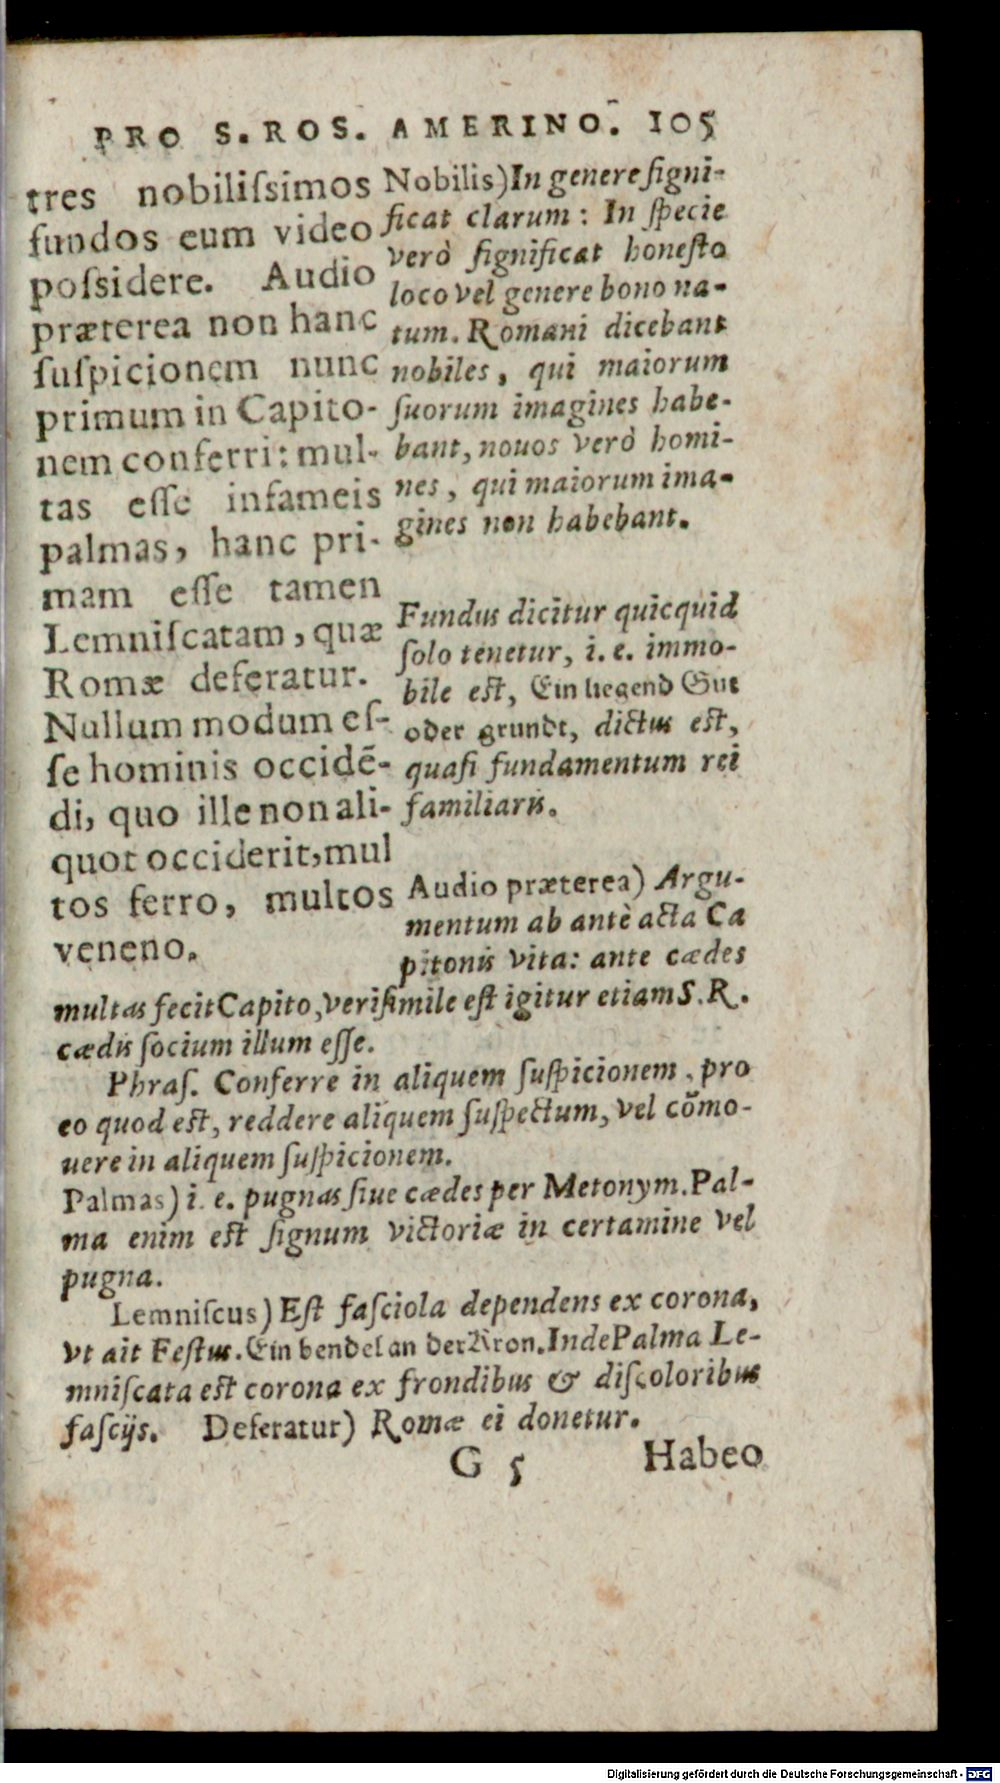 PRO S. ROS. AMERINO. 105
tres nobiliſsimos
fundos eum video
poſsidere. Audio
præterea non hanc
ſuſpicionem nunc
primum in Capito-
nem conferri: mul-
tas eſſe infameis
palmas, hanc pri-
mam eſſe tamen
Lemniſcatam, quæ
Romæ deferatur.
Nullum modum eſ-
ſe hominis occidē-
di, quo ille non ali-
quot occiderit, mul
tos ferro, multos
veneno.
Nobilis) In genere ſigni-
ficat clarum: In ſpecie
verò ſignificat honeſto
loco vel genere bono na-
tum. Romani dicebant
nobiles, qui maiorum
ſuorum imagines habe-
bant, nouos verò homi-
nes, qui maiorum ima-
gines non habebant.
Fundus dicitur quicquid
ſolo tenetur, i. e. immo-
bile eſt, Ein liegend Gut
oder grundt, dictus eſt,
quaſi fundamentum rei
familiaris.
Audio præterea) Argu-
mentum ab antè acta Ca
pitonis vita: ante cædes
multas fecit Capito, veriſimile eſt igitur etiam S. R.
cædis ſocium illum eſſe.
Phraſ. Conferre in aliquem ſuſpicionem, pro
eo quod eſt, reddere aliquem ſuſpectum, vel cōmo-
uere in aliquem ſuſpicionem.
Palmas) i. e. pugnas ſiue cædes per Metonym. Pal-
ma enim eſt ſignum victoriæ in certamine vel
pugna.
Lemniſcus) Eſt faſciola dependens ex corona,
vt ait Feſtus. Ein bendel an der Kron. Inde Palma Le-
mniſcata eſt corona ex frondibus & diſcoloribus
faſcijs. Deferatur) Romæ ei donetur.
G 5 Habeo
Digitalisierung gefördert durch die Deutsche Forschungsgemeinschaft - DFG